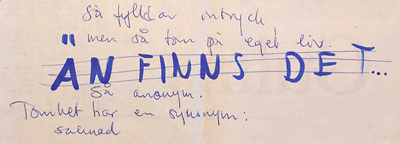 Så fylld av intryck
men så tom på eget liv.
ÄN FINNS DET...
Så anonym.
Tomhet har en synonym:
saknad